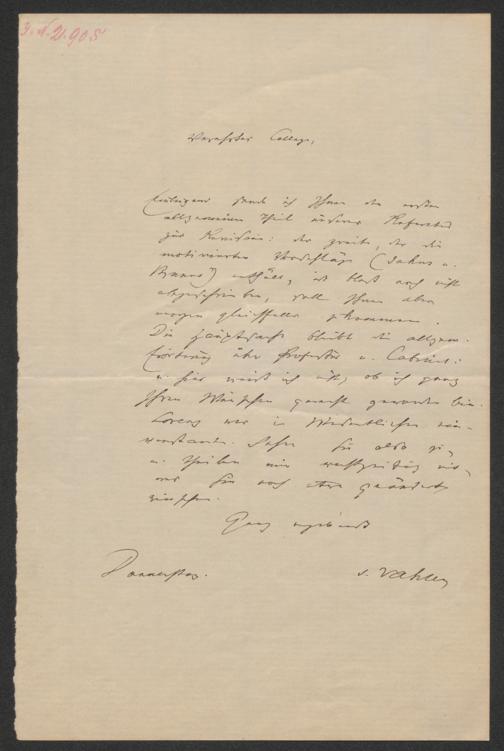 I. N. 21.905
Verehrter College,
Einliegend sende ich Ihnen den ersten
allgemeinen Theil unseres Referates
zur Revision: der zweite, der die
motivierten Vorschläge (Jahns u.
Brunns) enthält, ist bloß noch nicht
abgeschrieben, soll Ihnen aber
morgen gleichfalls zukommen.
Die Hauptsache bleibt die allgem.
Erörterung über Professur u. Cabinet:
u. hier weiß ich nicht, ob ich ganz
Ihren Wünschen gerecht geworden bin.
Lorenz war im Wesentlichen ein-
verstanden. Sehen Sie also zu,
u. theilen mir rechtzeitig mit,
was Sie noch etwa geändert
wünschen.
Ganz ergebenst
Donnerstag.
J. Vahlen